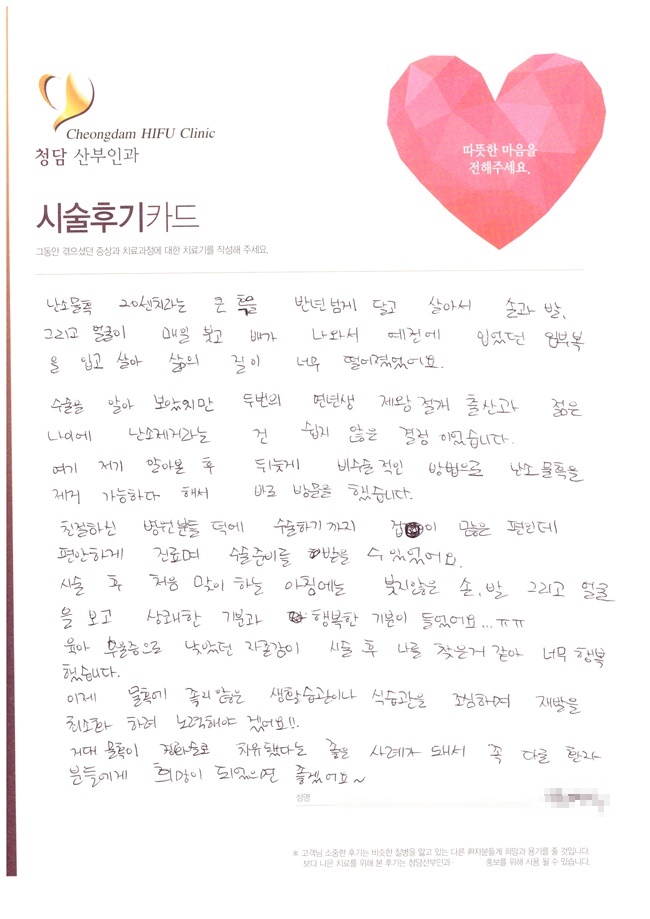 Cheongdam HIFU Clinic
청담 산부인과
따뜻한 마음을
전해주세요.
시술후기카드
그동안 겪으셨던 증상과 치료과정에 대한 치료기를 작성해 주세요.
난소물혹 20센치라는 큰 혹을 반년넘게 달고 살아서 손과 발,
그리고 얼굴이 매일 붓고 배가 나와서 예전에 입었던 임부복
을 입고 살아 삶의 질이 너무 떨어졌었어요.
수술을 알아 보았지만 두번의 연년생 제왕절개 출산과 젊은
나이에 난소제거라는 건 쉽지 않은 결정이었습니다.
여기 저기 알아본 후 뒤늦게 비수술적인 방법으로 난소물혹을
제거 가능하다 해서 바로 방문을 했습니다.
친절하신 병원분들 덕에 수술하기까지 겁이 많은 편인데
편안하게 진료며 수술준비를 받을 수 있었어요.
시술 후 처음 맞이 하는 아침에는 붓지않은 손, 발 그리고 얼굴
을 보고 상쾌한 기분과 행복한 기분이 들었어요...ㅠㅠ
육아 우울증으로 낮았던 자존감이 시술 후 나를 찾은거 같아 너무 행복
했습니다.
이제 물혹에 좋지않은 생활습관이나 식습관을 조심하며 재발을
최소화 하려 노력해야 겠어요!!.
거대 물혹이 치유했다는 좋은 사례자 돼서 꼭 다른 환자
분들에게 희망이 되었으면 좋겠어요~
성명
※ 고객님 소중한 후기는 비슷한 질병을 앓고 있는 다른 환자분들게 희망과 용기를 줄 것입니다.
보다 나은 치료를 위해 본 후기는 청담산부인과· 홍보를 위해 사용 될 수 있습니다.